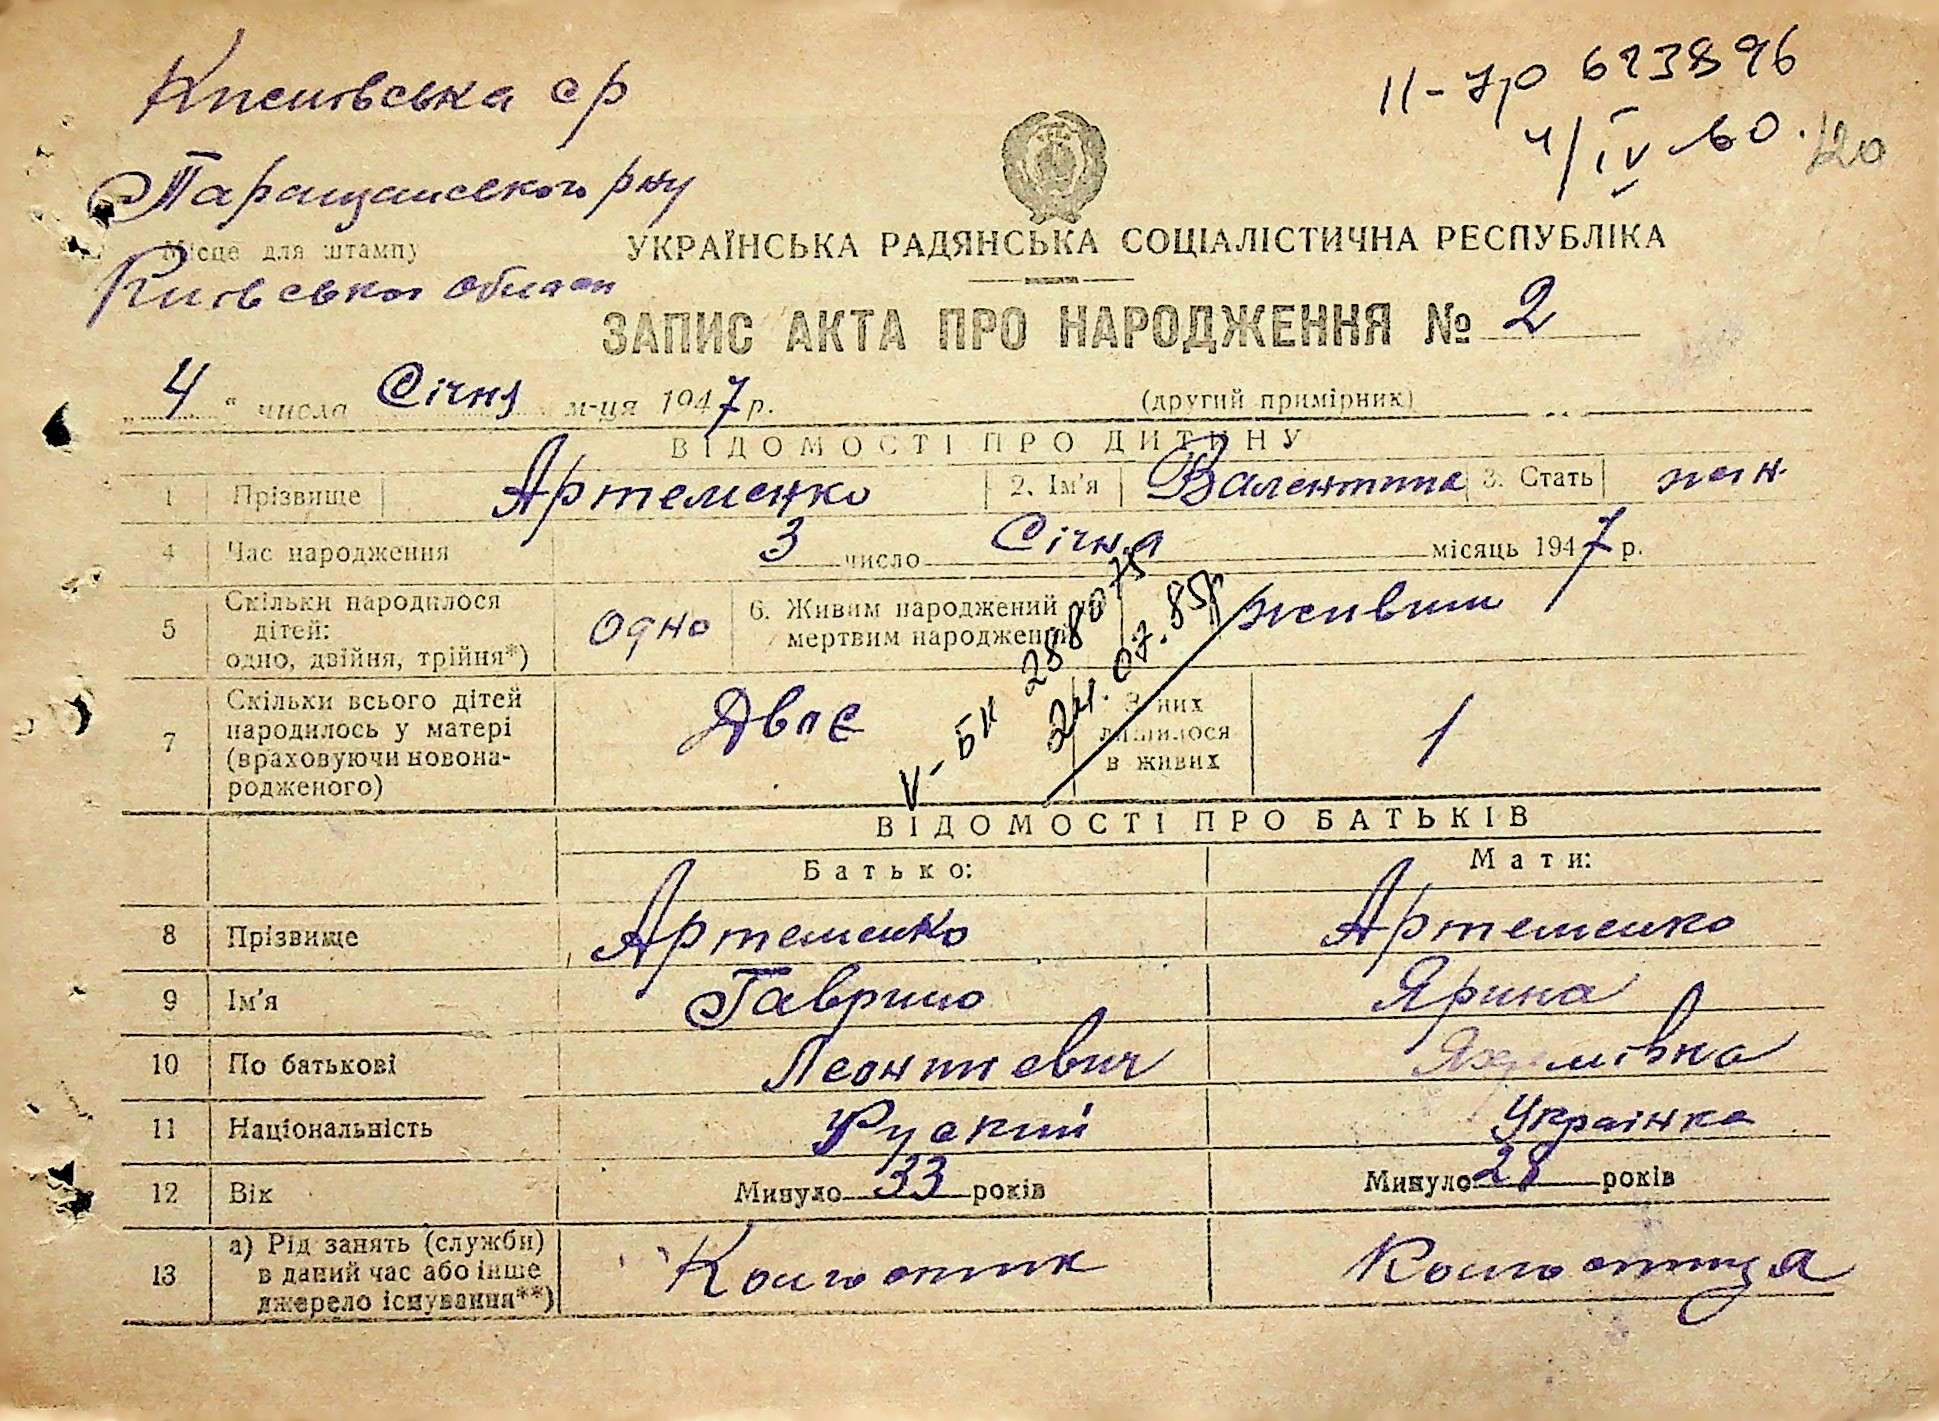 ср
Таращанського р-ну
Місце для штампу
Київської області
II-
623896
4/IV 60.
120
УКРАЇНСЬКА РАДЯНСЬКА СОЦІАЛІСТИЧНА РЕСПУБЛІКА
ЗАПИС АКТА ПРО НАРОДЖЕННЯ № 2
„4“ числа Січня м-ця 1947 р.
(другий примірник)
ВІДОМОСТІ ПРО ДИТИНУ
1 Прізвище Артеменко 2. Ім'я Валентина 3. Стать жін.
4 Час народження 3 число Січня місяць 1947 р.
5 Скільки народилося дітей: одно, двійня, трійня*) Одно 6. Живим народжений чи мертвим народжений живим
V-БК 288075
24.07.85р
7 Скільки всього дітей народилось у матері (враховуючи новонародженого) Двоє З них лишилося в живих 1
ВІДОМОСТІ ПРО БАТЬКІВ
Батько: Мати:
8 Прізвище Артеменко Артеменко
9 Ім'я Гаврило Ярина
10 По батькові Леонтиевич
11 Національність Руський Українка
12 Вік Минуло 33 років Минуло 28 років
13 а) Рід занять (служби) в даний час або інше джерело існування**) Колгоспник Колгоспниця